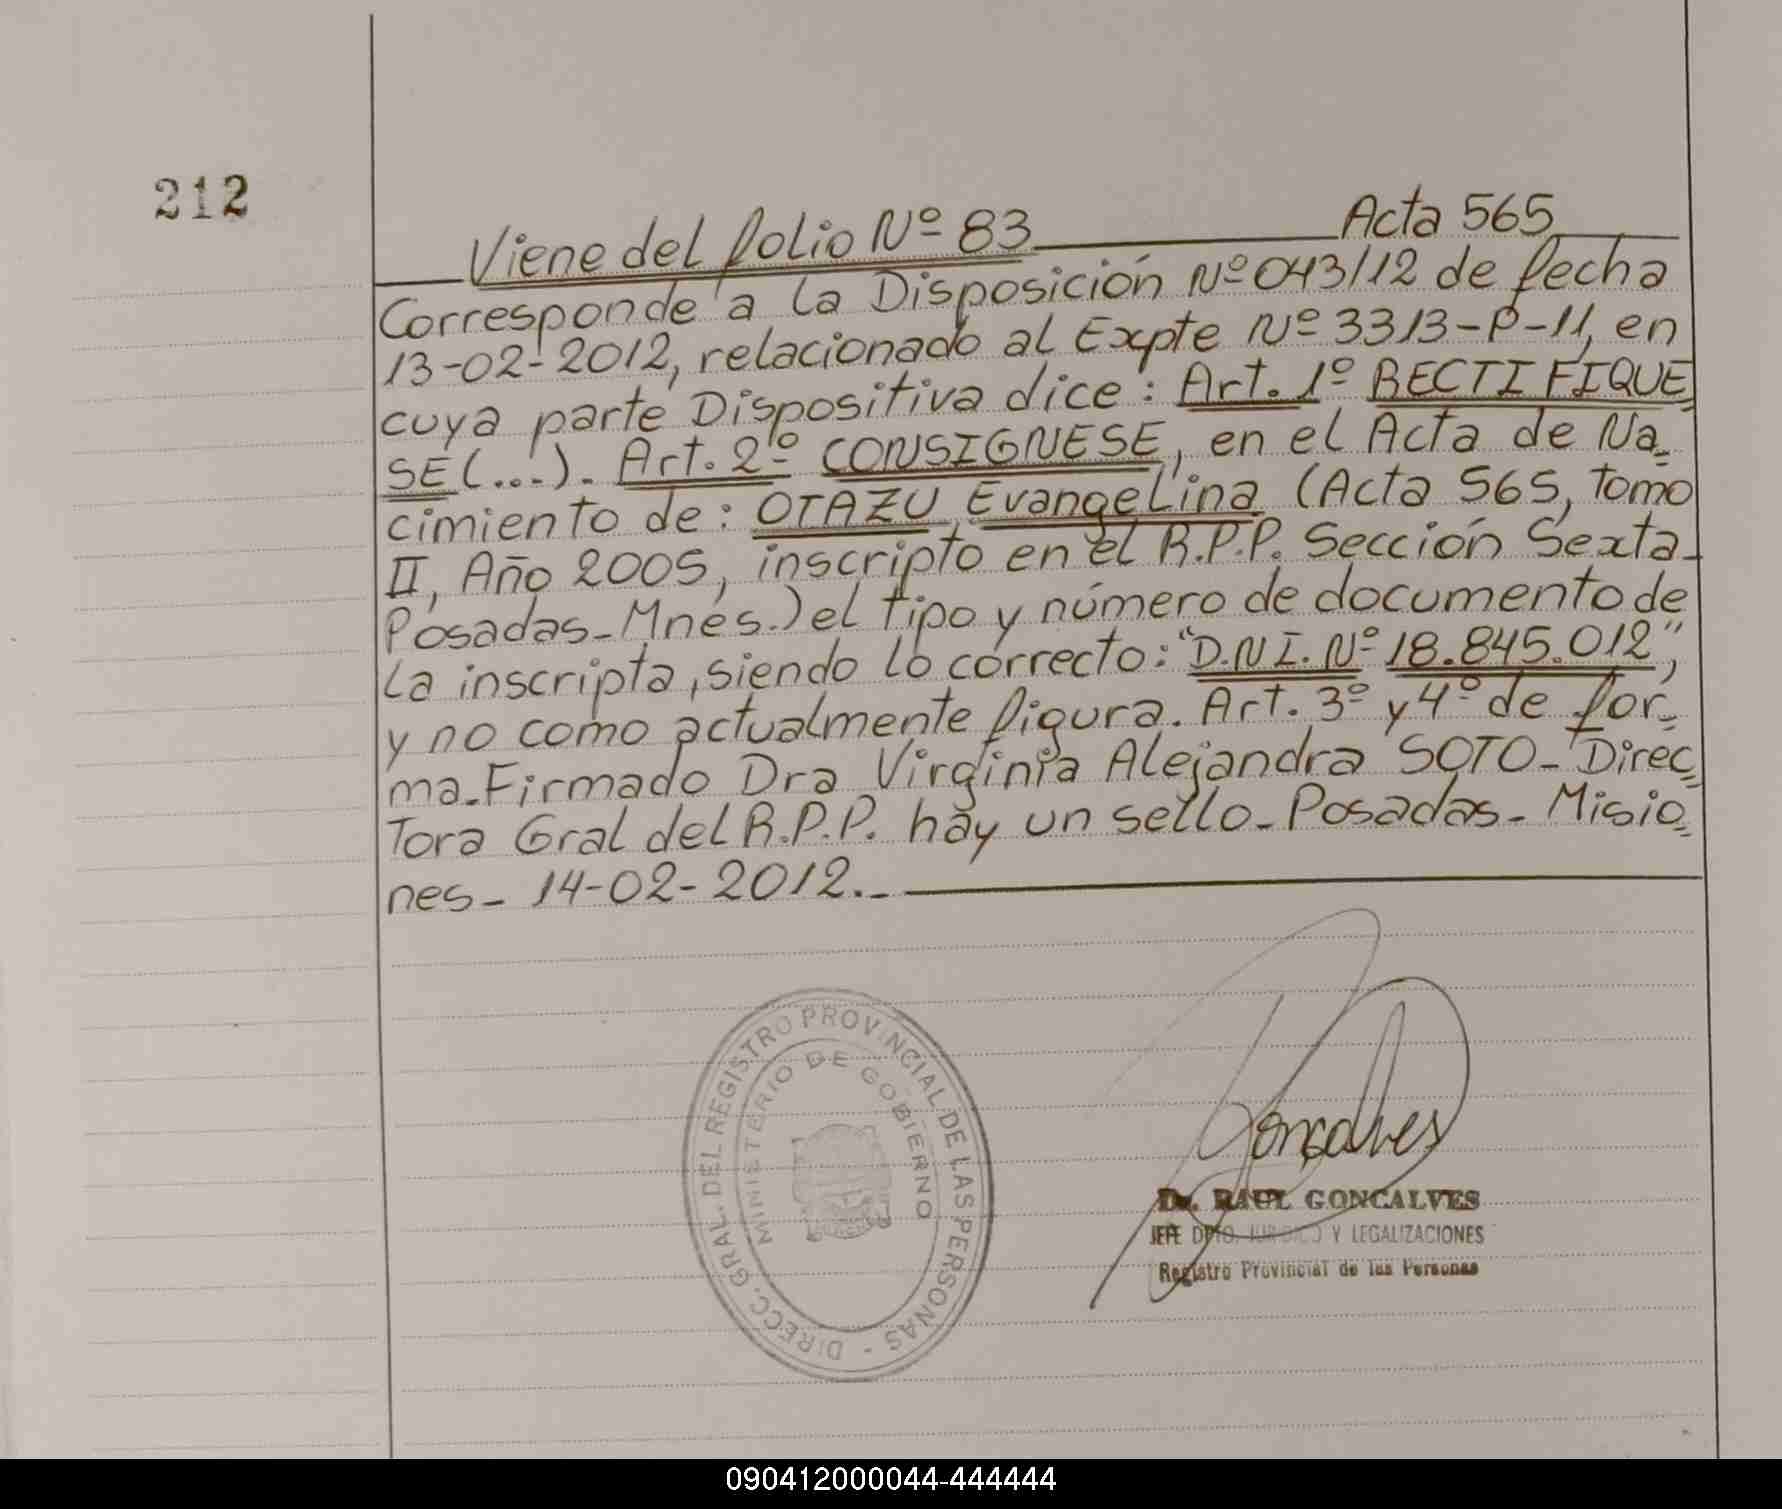 212
Viene del folio Nº 83 Acta 565
Corresponde a la Disposición Nº 043/12 de fecha
13-02-2012, relacionado al Expte Nº 3313-P-11, en
cuya parte Dispositiva dice: Art. 1º RECTIFIQUE
SE (...). Art. 2º CONSIGNESE, en el Acta de Na=
cimiento de: OTAZU Evangelina (Acta 565, Tomo
II, Año 2005, inscripto en el R.P.P. Sección Sexta_
Posadas_Mnes.) el tipo y número de documento de
la inscripta, siendo lo correcto: "D.N.I. Nº 18.845.012",
y no como actualmente figura. Art. 3º y 4º de for=
ma_Firmado Dra Virginia Alejandra SOTO_Direc=
tora Gral del R.P.P. hay un sello_Posadas_Misio=
nes_14-02-2012._
DIRECC. GRAL. DEL REGISTRO PROVINCIAL DE LAS PERSONAS -
MINISTERIO DE GOBIERNO
Goncalves
Dr. RAUL GONCALVES
JEFE DPTO. JURIDICO Y LEGALIZACIONES
Registro Provincial de las Personas
090412000044-444444